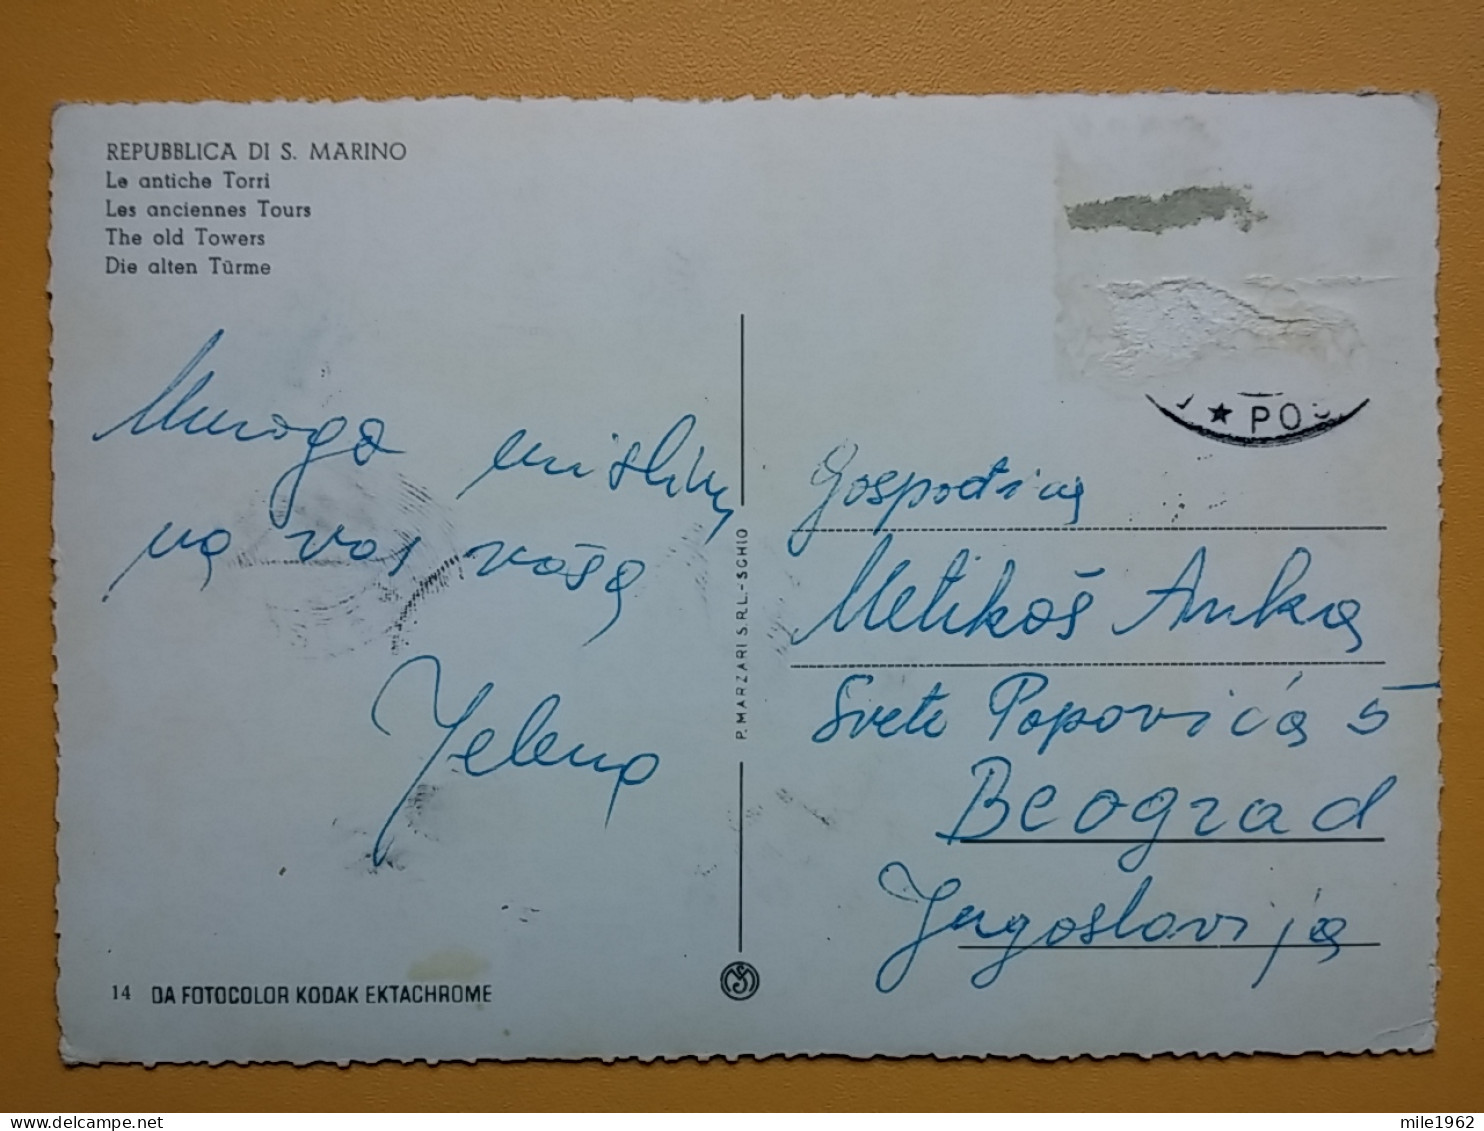 REPUBBLICA DI S. MARINO
Le antiche Torri
Les anciennes Tours
The old Towers
Die alten Türme
Mnogo mislim
na vas vaša
Jelena
14 DA FOTOCOLOR KODAK EKTACHROME
P. MARZARI S.R.L. - SCHIO
★ POS
Gospođica
Metikoš Anka
Svete Popovića 5
Beograd
Jugoslavija
mile1962